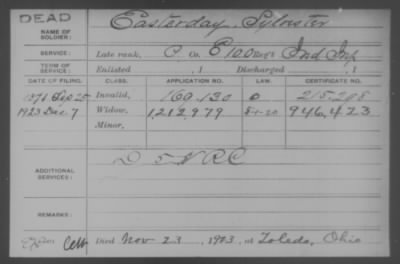 DEAD
NAME OF SOLDIER: Easterday, Sylvester
SERVICE: Late rank, C Co. E 100 Reg't Ind Inf
TERM OF SERVICE: Enlisted , 1 Discharged , 1
DATE OF FILING. CLASS. APPLICATION NO. LAW. CERTIFICATE NO.
Sep 25 Invalid, 160,130 215,298
1923 Dec. 7 Widow, 1,212,979 5-1-20 946,423
Minor,
ADDITIONAL SERVICES: D 5 V R C
REMARKS:
Died Nov 23, 1923, at Toledo, Ohio